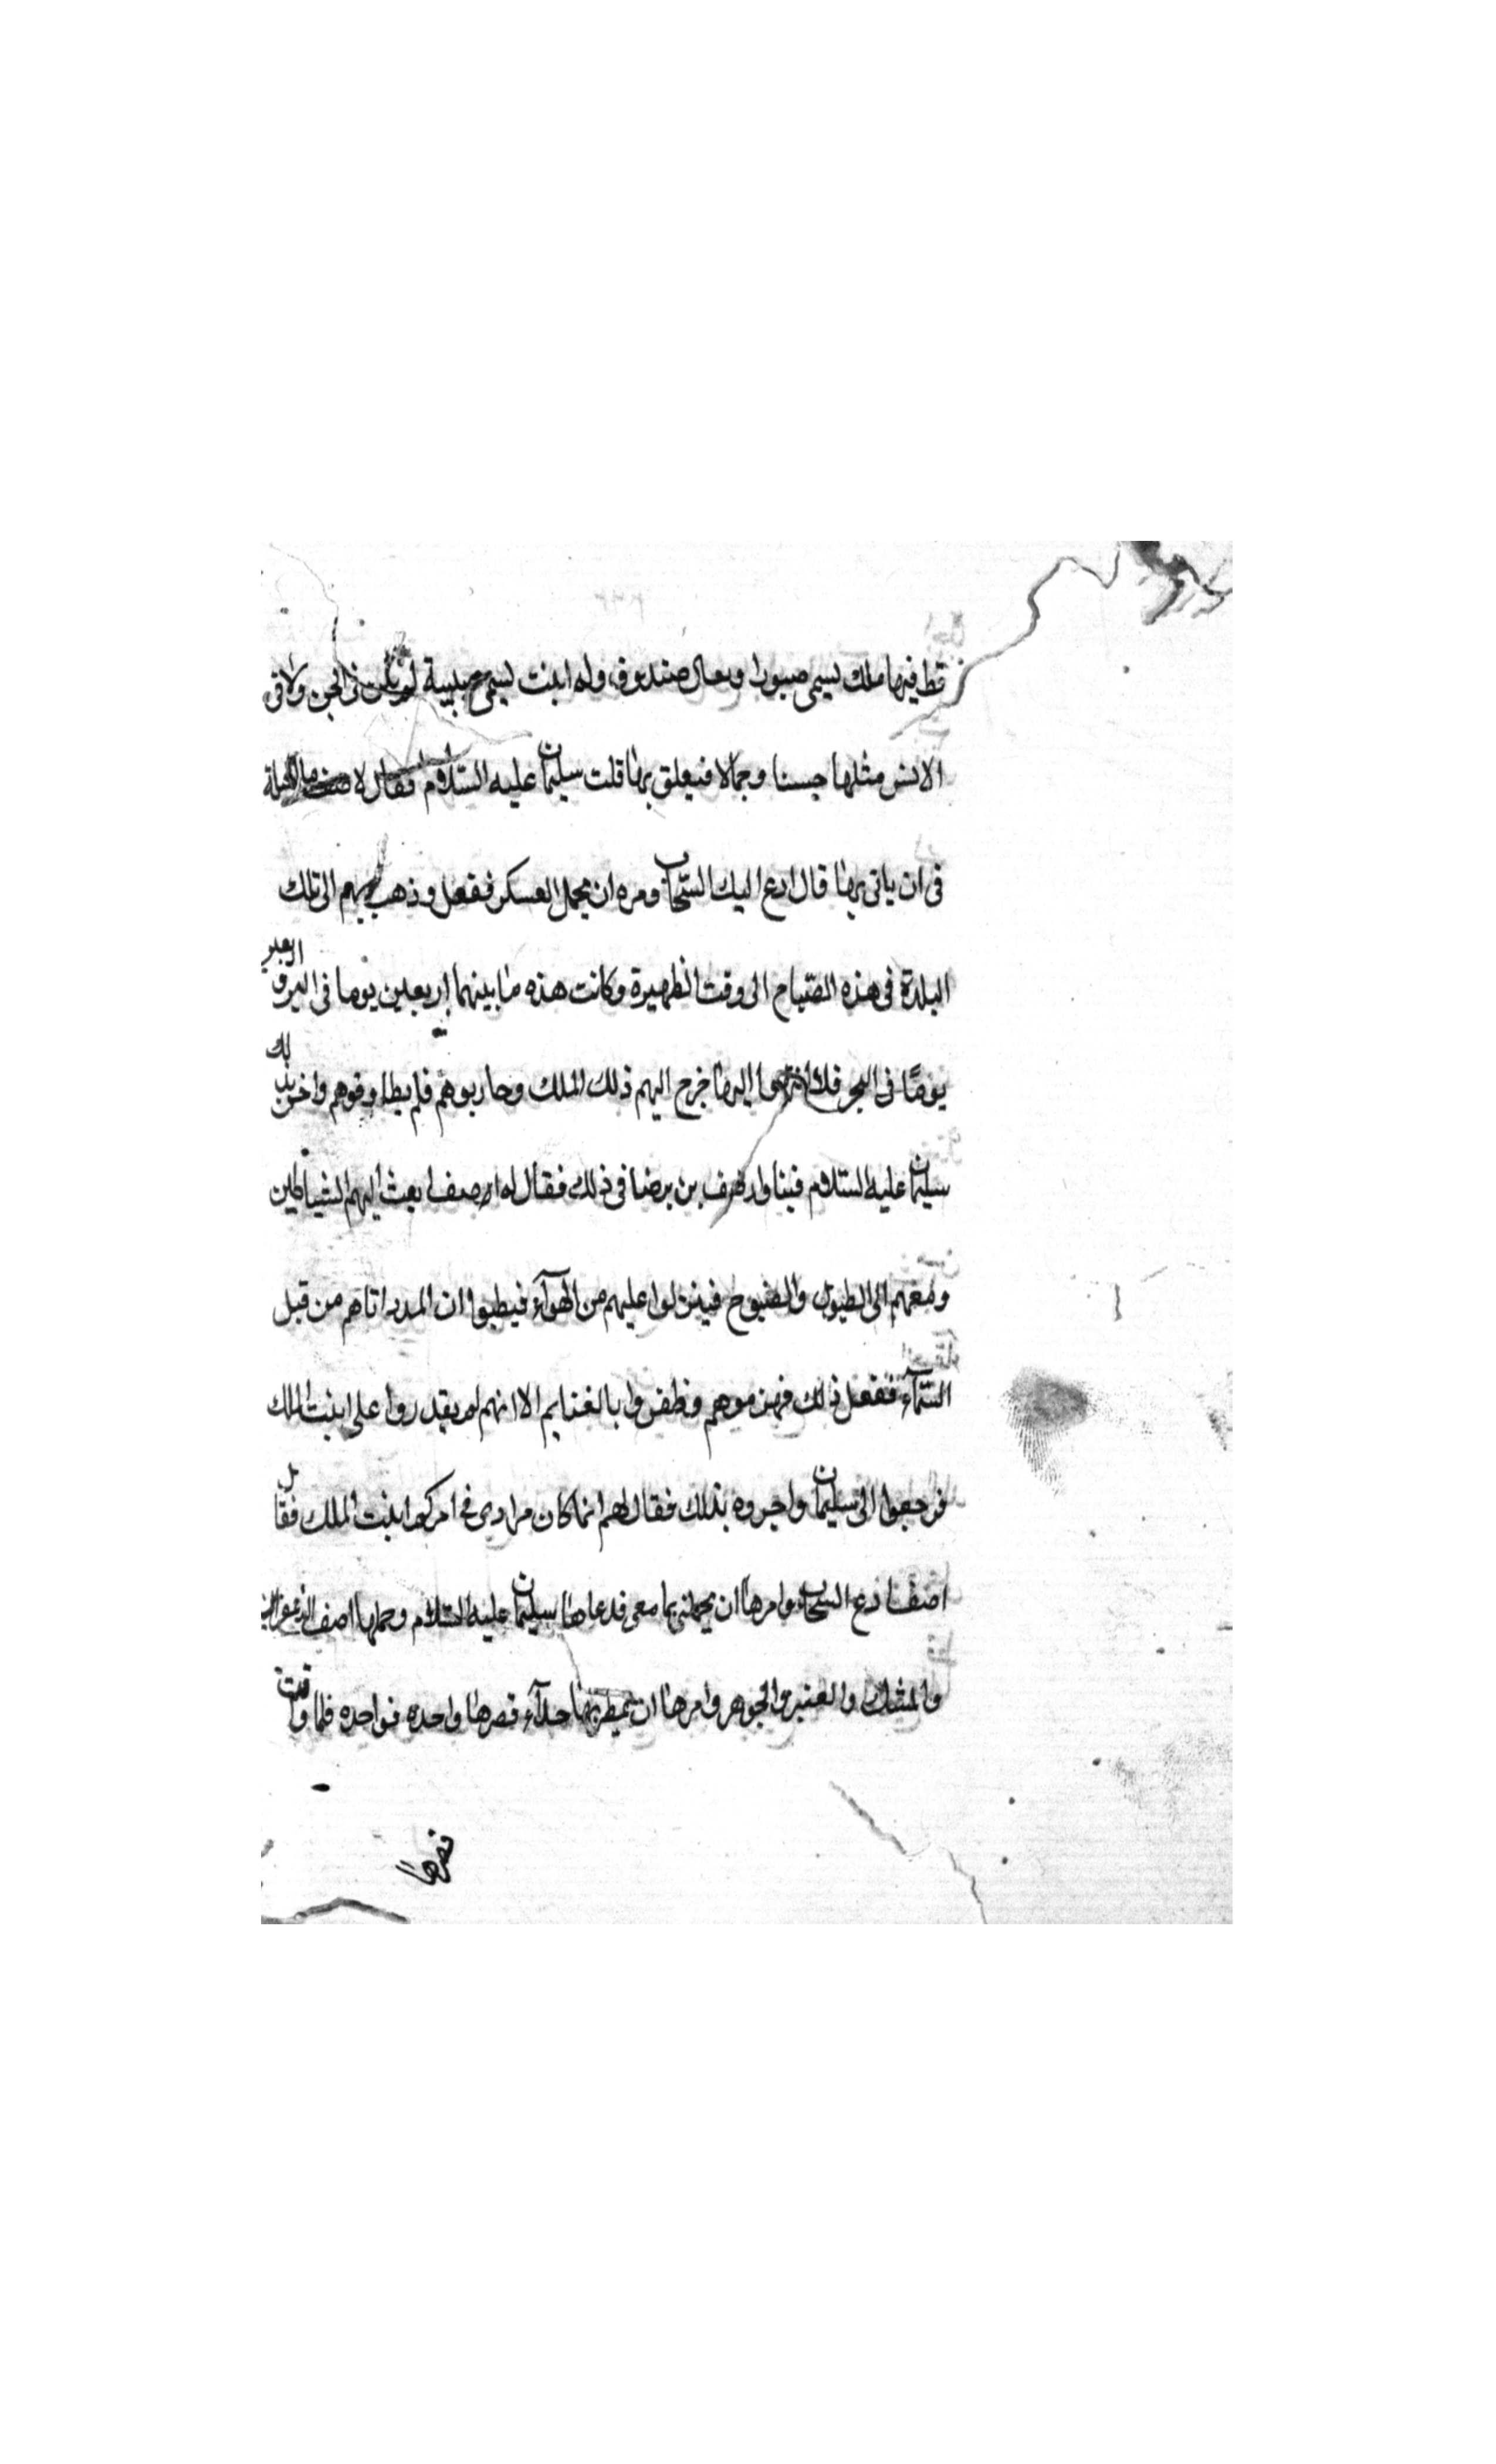 قط فيها ملك يسمى صبورا ويقال صندوف وله ابنت يسمى حبيبة لم يكن في الجن ولا في
الانس مثلها حسنا وجمالا فيعلق بها قلت سليمان عليه السلام فقال لا صف ما الحيلة
في ان ياتى بها قال ادع اليك السحاب ومره ان يحمل العسكر ففعل وذهب بهم الى تلك
البلدة في هذه الصباح الى وقت الظهيرة وكانت هذه ما بينهما اربعين يوما في البر و اربعين
يوما في البحر فلما انتهوا اليها خرج اليهم ذلك الملك وحاربوهم فلم يطاوقوهم واخبر بذلك
سليمان عليه السلام بن برضا في ذلك فقال له اصف ابعث اليهم الشياطين
ومعهم الطبول فينزلوا عليهم من الهوآء ان المدد اتاهم من قبل
السمآء ففعل ذلك فهزموهم وظفروا بالغنايم الا انهم لم يقدروا على ابنت الملك
فرجعوا الى سليمان واخبروه بذلك فقال لهم انما كان مرادى في امركم ابنت الملك فقال
اصف ادع السحاب وامرها ان يحملنى بما معى فدعاها سليمان عليه السلام وحملها اصف الزعفران
والمشك والعنبر والجوهر وامرها ان يمطر بها حذآء قصرها واحده فواحده فلما وقت